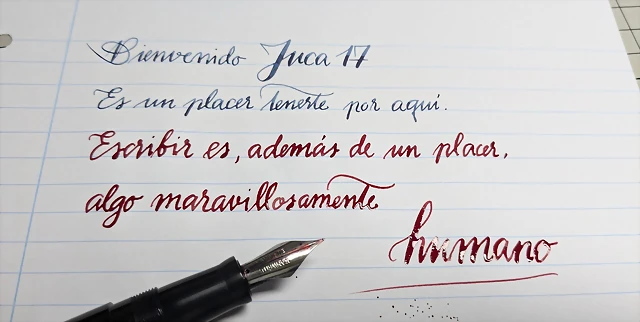 Bienvenido Juca 17
Es un placer tenerte por aquí.
Escribir es, además de un placer,
algo maravillosamente
humano